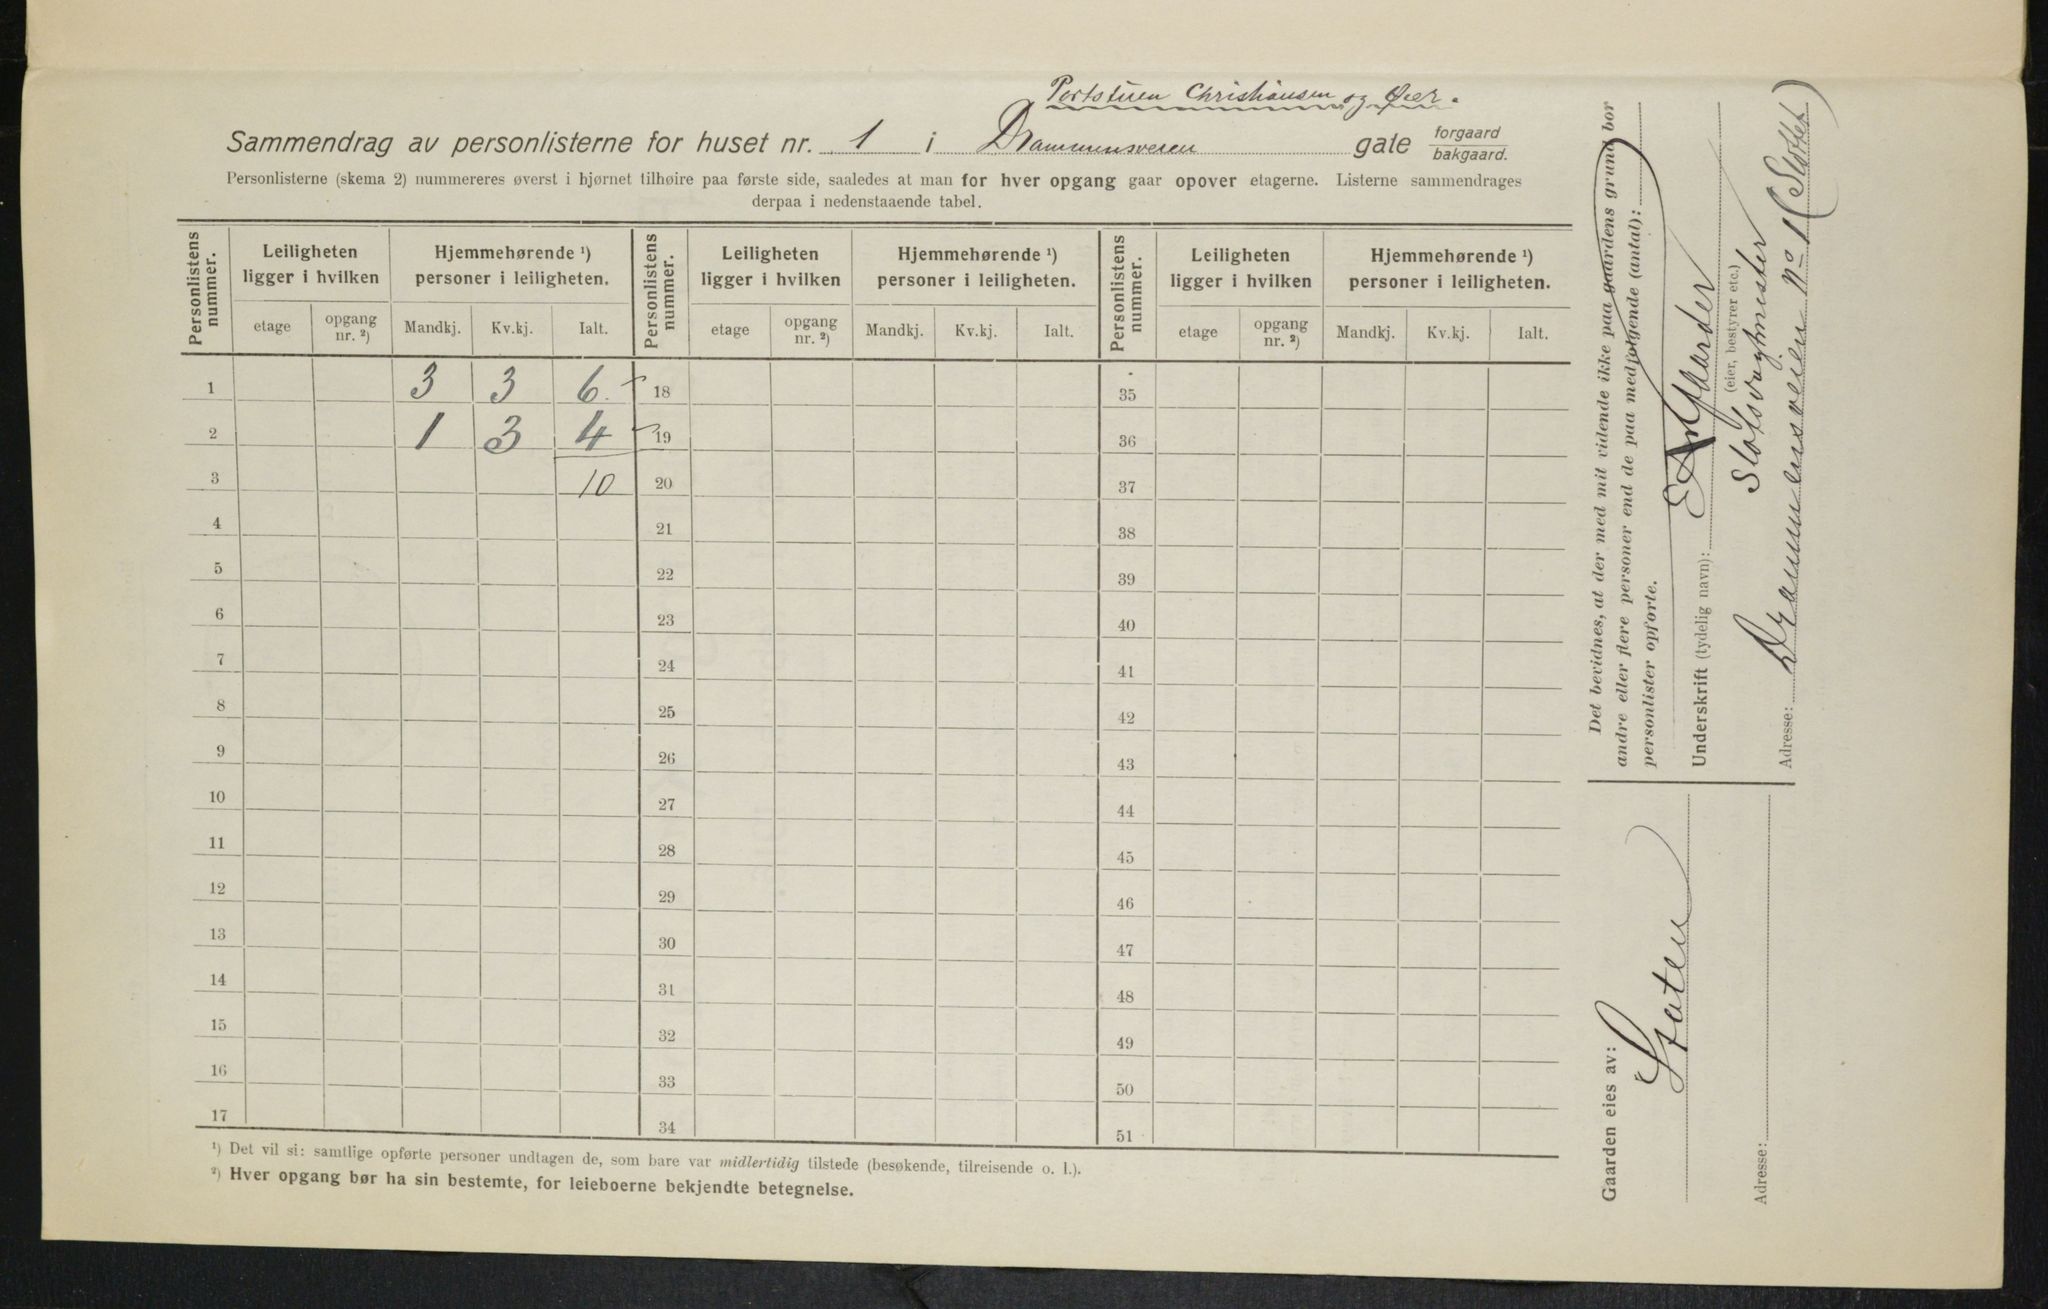 Portstuen Christiansen og Øier.
Sammendrag av personlisterne for huset nr. 1 i Drammensveien gate forgaard bakgaard.
Personlisterne (skema 2) nummereres øverst i hjørnet tilhøire paa første side, saaledes at man for hver opgang gaar opover etagerne. Listerne sammendrages
derpaa i nedenstaaende tabel.
Personlistens nummer. Leiligheten ligger i hvilken Hjemmehørende ¹) personer i leiligheten. Personlistens nummer. Leiligheten ligger i hvilken Hjemmehørende ¹) personer i leiligheten. Personlistens nummer. Leiligheten ligger i hvilken Hjemmehørende ¹) personer i leiligheten.
etage opgang nr. ²) Mandkj. Kv.kj. Ialt. etage opgang nr. ²) Mandkj. Kv.kj. Ialt. etage opgang nr. ²) Mandkj. Kv.kj. Ialt.
1 3 3 6 18 35
2 1 3 4 19 36
3 10 20 37
4 21 38
5 22 39
6 23 40
7 24 41
8 25 42
9 26 43
10 27 44
11 28 45
12 29 46
13 30 47
14 31 48
15 32 49
16 33 50
17 34 51
¹) Det vil si: samtlige opførte personer undtagen de, som bare var midlertidig tilstede (besøkende, tilreisende o. l.).
²) Hver opgang bør ha sin bestemte, for leieboerne bekjendte betegnelse.
Det bevidnes, at der med mit vidende ikke paa gaardens grund bor
andre eller flere personer end de paa medfølgende (antal):
personlister opførte.
Underskrift (tydelig navn): Gaarder
(eier, bestyrer etc.)
Slotsvagtmester
Adresse: Drammensveien No 1 (Slottet)
Gaarden eies av:
Staten
Adresse: